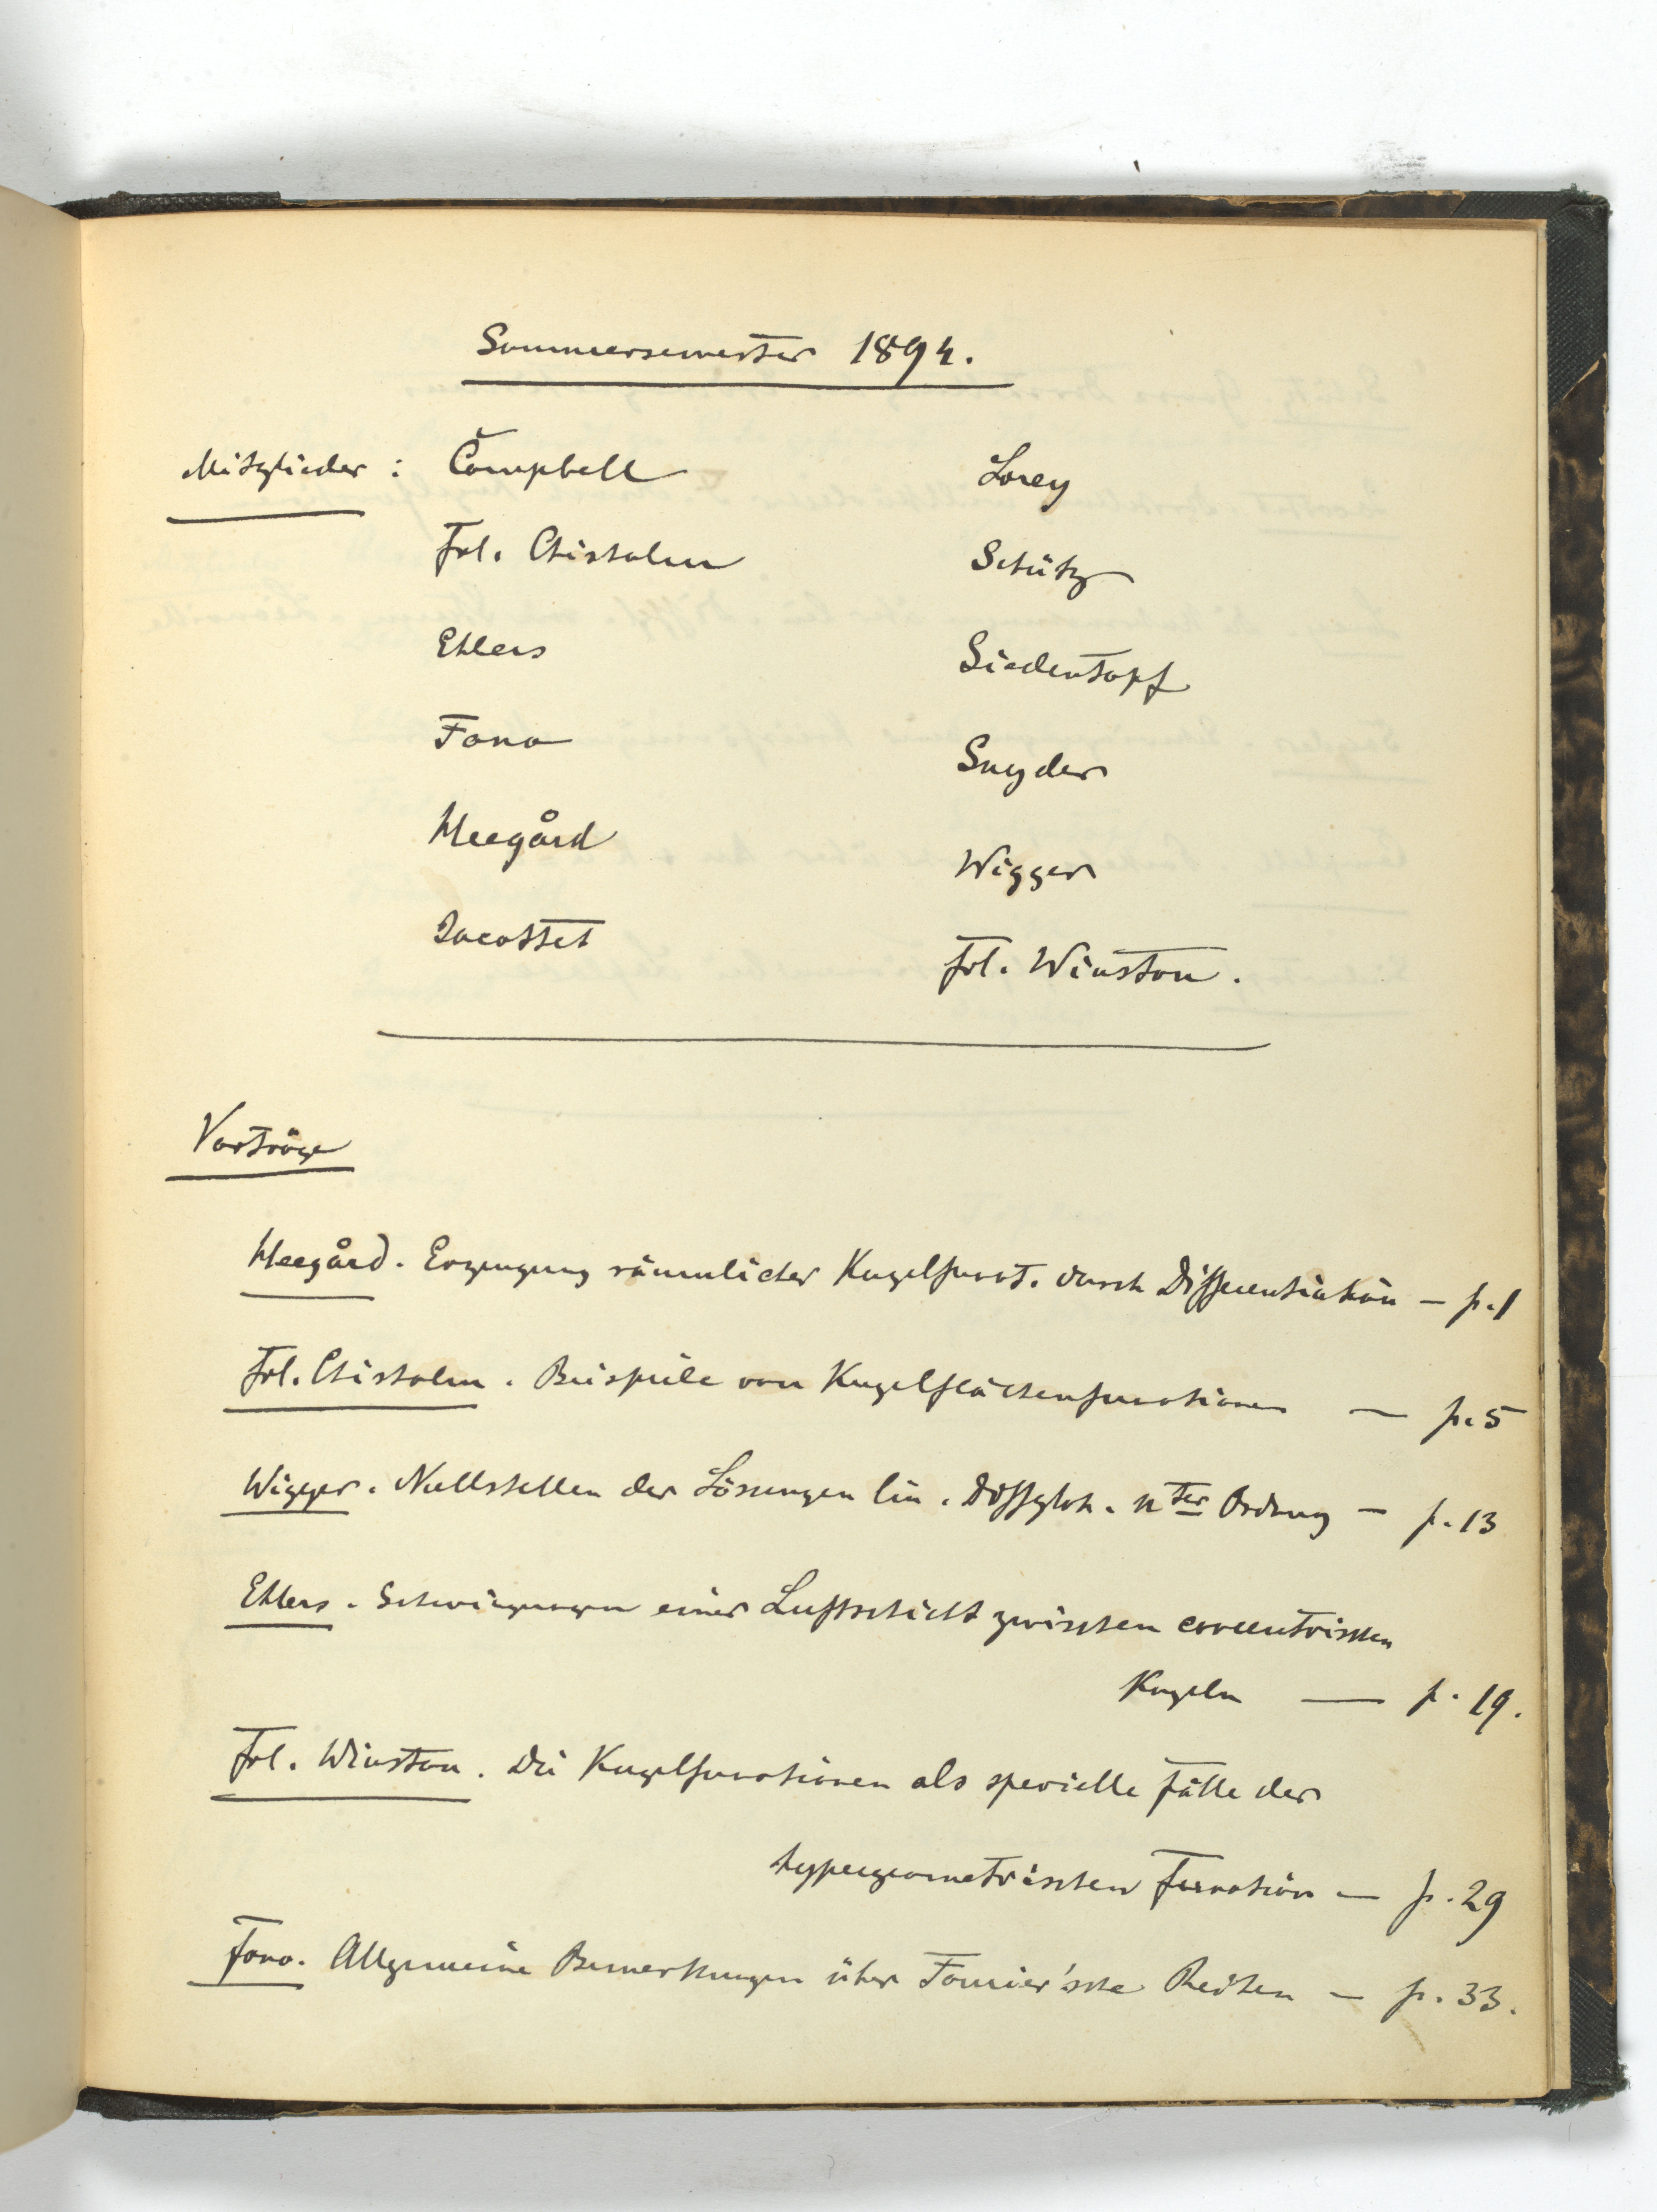 Sommersemester 1894.
Mitglieder: Campbell Lorey
Frl. Chisholm Schütz
Ehlers Siedentopf
Fano Snyder
Heegård Wigger
Jaccottet Frl. Winston.
Vorträge
Heegård. Erzeugung räumlicher Kugelfunct. durch Differentiation — p. 1
Frl. Chisholm. Beispiele von Kugelflächenfunctionen — p. 5
Wigger. Nullstellen der Lösungen lin. Diffglch. nter Ordnung — p. 13
Ehlers. Schwingungen einer Luftschicht zwischen concentrischen
Kugeln — p. 19.
Frl. Winston. Die Kugelfunctionen als specielle Fälle der
hypergeometrischen Function — p. 29
Fano. Allgemeine Bemerkungen über Fourier'sche Reihen — p. 33.